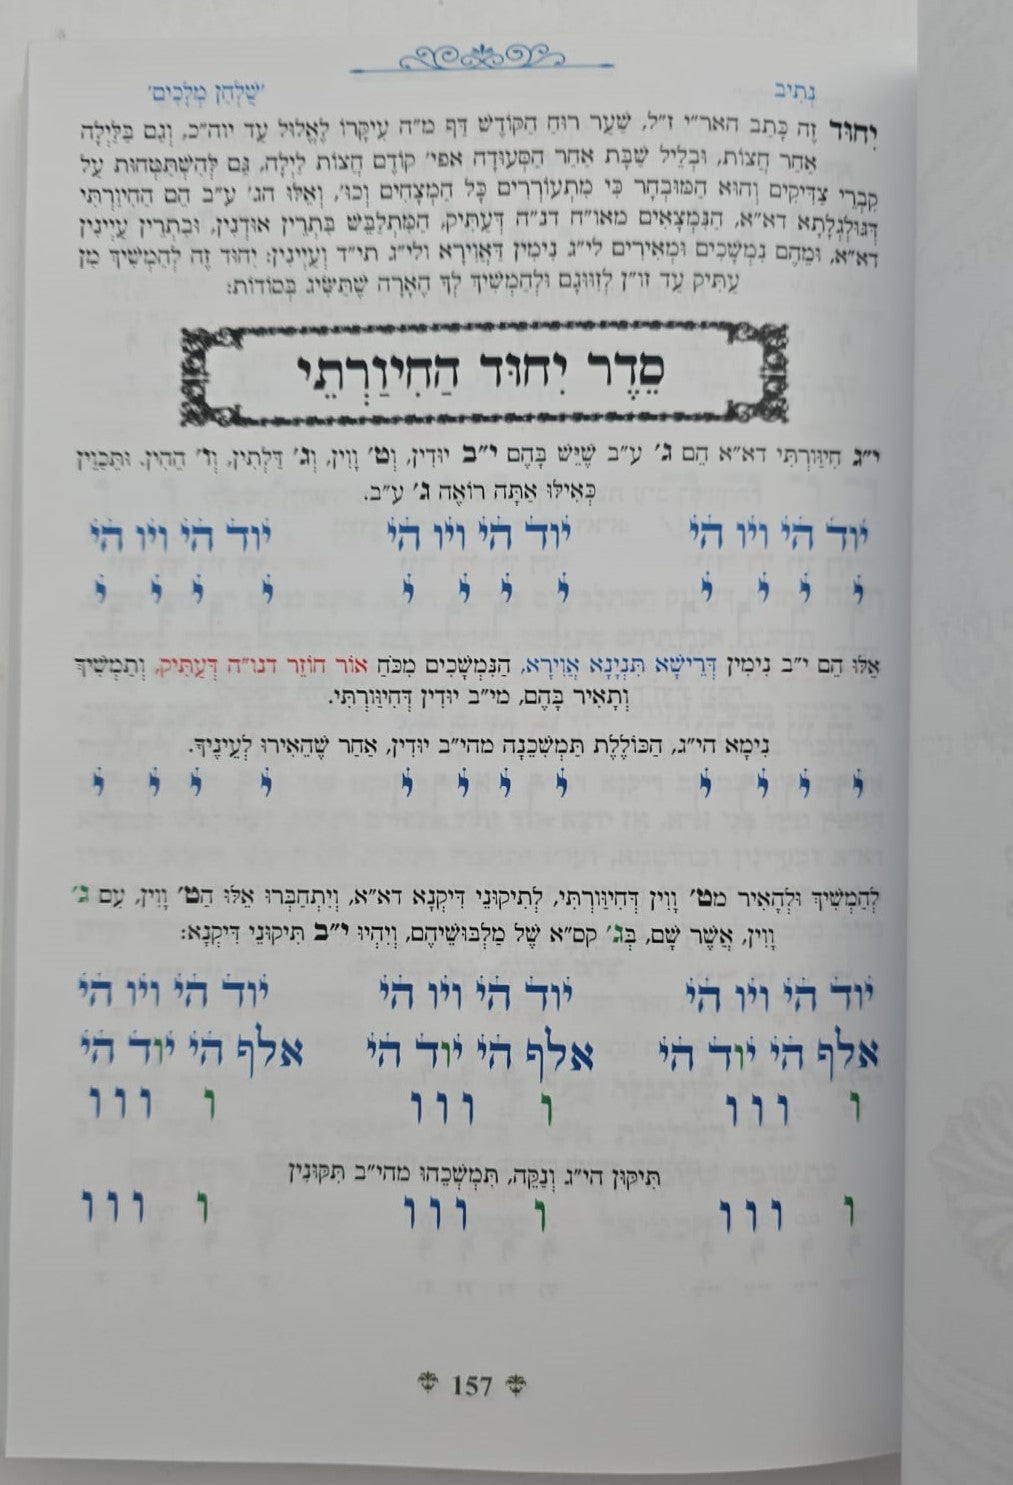 נְתִיב
'שֻׁלְחַן מְלָכִים'
יִחוּד זֶה כָּתַב האר״י ז״ל, שַׁעַר רוּחַ הַקּוֹדֶשׁ דַּף מ״ה עִיקָּרוֹ לֶאֱלוּל עַד יוה״כ, וְגַם בַּלַּיְלָה
אַחַר חֲצוֹת, וּבְלֵיל שַׁבָּת אַחַר הַסְּעוּדָה אפי׳ קוֹדֶם חֲצוֹת לַיְלָה, גַּם לְהִשְׁתַּטְּחוּת עַל
קִבְרֵי צַדִּיקִים וְהוּא הַמּוּבְחָר כִּי מִתְעוֹרְרִים כָּל הַמְּצָחִים וְכוּ׳, וְאֵלּוּ הג׳ ע״ב הֵם הַחִיוַּרְתֵּי
דְּגוּלְגַלְתָּא דא״א, הַנִּמְצָאִים מאו״ח דנ״ה דְּעַתִּיק, הַמִּתְלַבֵּשׁ בִּתְרֵין אוּדְנִין, וּבִתְרֵין עַיְינִין
דא״א, וּמֵהֶם נִמְשָׁכִים וּמְאִירִים לי״ג נִימִין דַּאֲוִירָא ולי״ג תי״ד וְעַיְינִין: יִחוּד זֶה לְהַמְשִׁיךְ מִן
עַתִּיק עַד זו״ן לְזַוּוּגָם וּלְהַמְשִׁיךְ לְךָ הֶאָרָה שֶׁתַּשִּׂיג בְּסוֹדוֹת:
סֵדֶר יִחוּד הַחִיוַרְתֵי
י״ג חִיוַּרְתֵּי דא״א הֵם ג׳ ע״ב שֶׁיֵּשׁ בָּהֶם י״ב יוּדִין, וְט׳ וָוִין, וְג׳ דַּלְתִין, וְו׳ הֵהִין. וּתְכַוֵּין
כְּאִילּוּ אַתָּה רוֹאֶה ג׳ ע״ב.
יׄוד הׄי ויׄו הׄי יׄוד הׄי ויׄו הׄי יׄוד הׄי ויׄו הׄי
יׄ יׄ יׄ יׄ יׄ יׄ יׄ יׄ יׄ יׄ יׄ יׄ
אֵלּוּ הֵם י״ב נִימִין דְּרֵישָׁא תִּנְיָנָא אֲוִירָא, הַנִּמְשָׁכִים מִכֹּחַ אוֹר חוֹזֵר דנו״ה דְּעַתִּיק, וְתַמְשִׁיךְ
וְתָאִיר בָּהֶם, מי״ב יוּדִין דְּחִיוַּרְתֵּי.
נִימָא הי״ג, הַכּוֹלֶלֶת תַּמְשִׁכֶנָּה מהי״ב יוּדִין, אַחַר שֶׁהֵאִירוּ לְעֵינֶיךָ.
יׄ יׄ יׄ יׄ יׄ יׄ יׄ יׄ יׄ יׄ יׄ יׄ
לְהַמְשִׁיךְ וּלְהָאִיר מט׳ וָוִין דְּחִיוַּרְתֵּי, לְתִיקּוּנֵי דִּיקְנָא דא״א, וְיִתְחַבְּרוּ אֵלּוּ הַט׳ וָוִין, עִם ג׳
וָוִין, אֲשֶׁר שָׁם, בְּג׳ קס״א שֶׁל מַלְבּוּשֵׁיהֶם, וְיִהְיוּ י״ב תִּיקּוּנֵי דִּיקְנָא:
יׄוד הׄי ויׄו הׄי יׄוד הׄי ויׄו הׄי יׄוד הׄי ויׄו הׄי
אלף הׄי יׄוד הׄי אלף הׄי יׄוד הׄי אלף הׄי יׄוד הׄי
ו ו ו ו ו ו ו ו ו ו ו ו
תִּיקּוּן הי״ג וְנַקֵּה, תִּמְשְׁכֵהוּ מהי״ב תִּקּוּנִין
ו ו ו ו ו ו ו ו ו ו ו ו
157